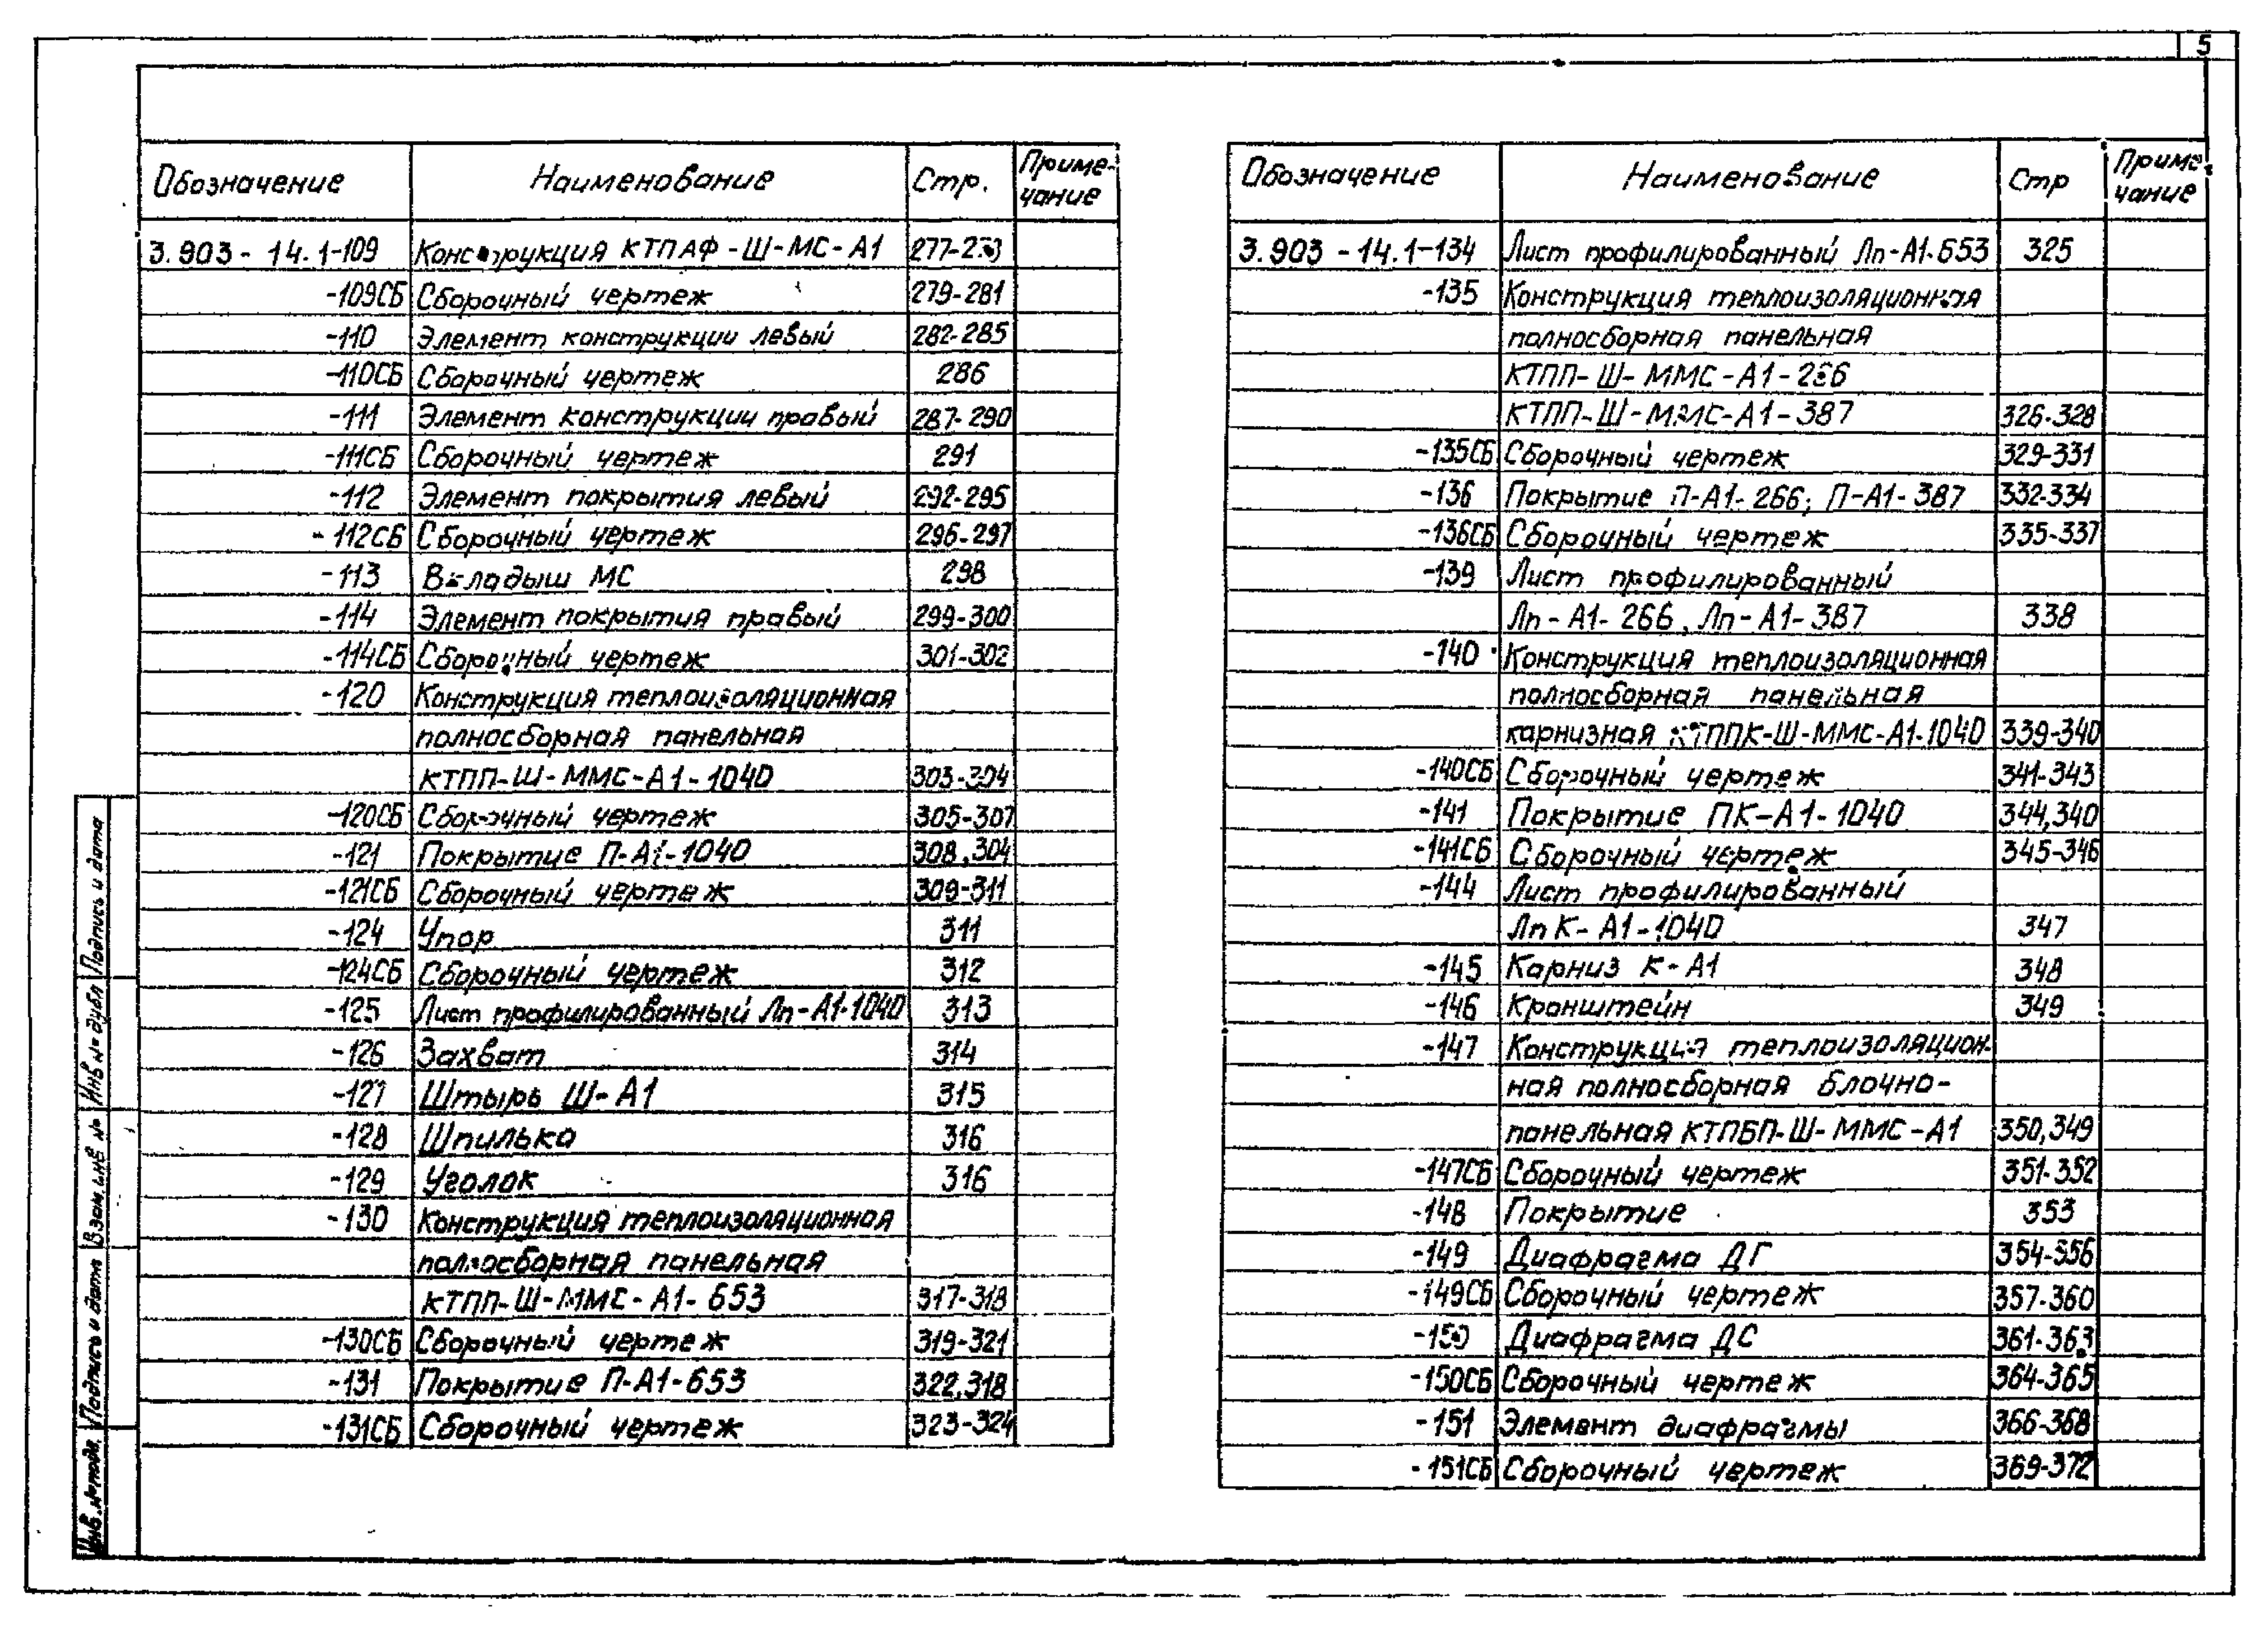 5
Обозначение Наименование Стр. Приме-
чание
3.903 - 14.1-109 Конструкция КТПАФ-Ш-МС-А1
-109СБ Сборочный чертеж 279-281
-110 Элемент конструкции левый 282-285
-110СБ Сборочный чертеж 286
-111 Элемент конструкции правый 287-290
-111СБ Сборочный чертеж 291
-112 Элемент покрытия левый 292-295
-112СБ Сборочный чертеж 296-297
-113 Вкладыш МС 298
-114 Элемент покрытия правый 299-300
-114СБ Сборочный чертеж 301-302
-120 Конструкция теплоизоляционная
полносборная панельная
КТПП-Ш-ММС-А1-1040 303-304
-120СБ Сборочный чертеж 305-307
-121 Покрытие П-А1-1040 308,304
-121СБ Сборочный чертеж 309-311
-124 Упор 311
-124СБ Сборочный чертеж 312
-125 Лист профилированный Лп-А1-1040 313
-126 Захват 314
-127 Штырь Ш-А1 315
-128 Шпилька 316
-129 Уголок 316
-130 Конструкция теплоизоляционная
полносборная панельная
КТПП-Ш-ММС-А1-653 317-318
-130СБ Сборочный чертеж 319-321
-131 Покрытие П-А1-653 322,318
-131СБ Сборочный чертеж 323-324
Обозначение Наименование Стр Приме-
чание
3.903 - 14.1-134 Лист профилированный Лп-А1-653 325
-135 Конструкция теплоизоляционная
полносборная панельная
КТПП-Ш-ММС-А1-266
КТПП-Ш-ММС-А1-387 326-328
-135СБ Сборочный чертеж 329-331
-136 Покрытие П-А1-266; П-А1-387 332-334
-136СБ Сборочный чертеж 335-337
-139 Лист профилированный
Лп-А1-266, Лп-А1-387 338
-140 Конструкция теплоизоляционная
полносборная панельная
карнизная КТППК-Ш-ММС-А1-1040 339-340
-140СБ Сборочный чертеж 341-343
-141 Покрытие ПК-А1-1040 344,340
-141СБ Сборочный чертеж 345-346
-144 Лист профилированный
ЛпК-А1-1040 347
-145 Карниз К-А1 348
-146 Кронштейн 349
-147 Конструкция теплоизоляцион-
ная полносборная блочно-
панельная КТПБП-Ш-ММС-А1 350,349
-147СБ Сборочный чертеж 351-352
-148 Покрытие 353
-149 Диафрагма ДГ 354-356
-149СБ Сборочный чертеж 357-360
-150 Диафрагма ДС 361-363
-150СБ Сборочный чертеж 364-365
-151 Элемент диафрагмы 366-368
-151СБ Сборочный чертеж 369-372
Инв. № подл. Подпись и дата Взам. инв № Инв № дубл Подпись и дата